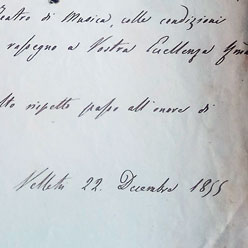 Teatro di Musica, colle condizioni
rassegno a Vostra Eccellenza
rispetto passo all'onore di
Velletri 22. Decembre 1855